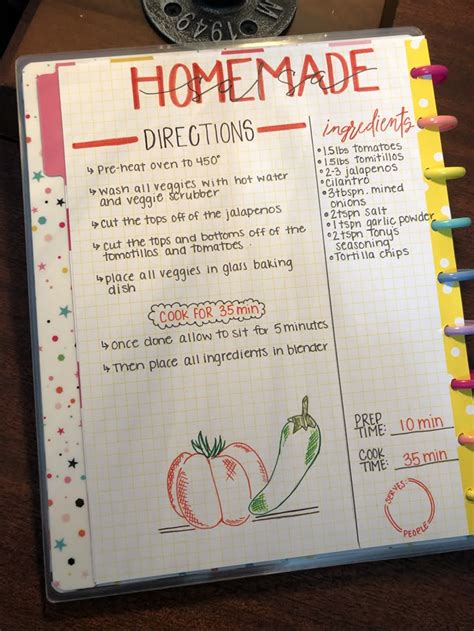 M 1949
HOMEMADE
salsa
DIRECTIONS
↳ Pre-heat oven to 450°
↳ wash all veggies with hot water
and veggie scrubber
↳ cut the tops off of the jalapenos
↳ cut the tops and bottoms off of the
tomotillos and tomatoes
↳ place all veggies in glass baking
dish
COOK FOR 35 min
↳ once done allow to sit for 5 minutes
↳ Then place all ingredients in blender
ingredients
• 1.5lbs tomatoes
• 1.5lbs tomitillos
• 2-3 jalapenos
• cilantro
• 3tbspn. mined
onions
• 2tspn salt
• 1tspn garlic powder
• 2tspn Tony's
seasoning
• Tortilla chips
PREP
TIME: 10 min
COOK
TIME: 35 min
SERVES
PEOPLE